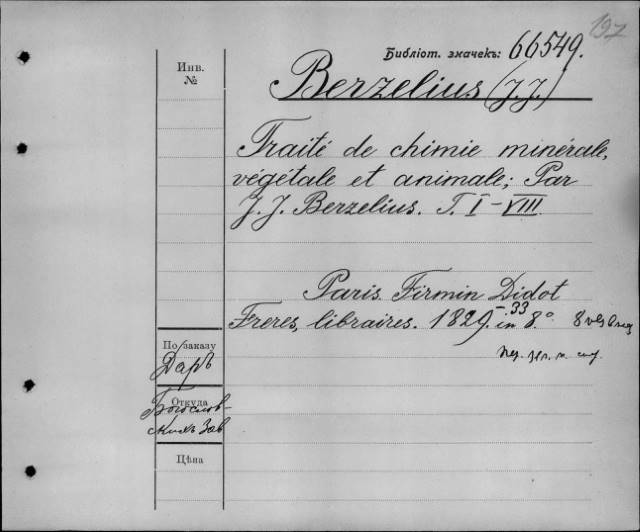 197
Библіот. значекъ: 66549.
Инв.
№
Berzelius (J. J.)
Traité de chimie minérale,
végétale et animale; Par
J. J. Berzelius. T. I–VIII.
Paris. Firmin Didot
Freres, libraires. 1829–33. in 8.° 8 vls
По заказу
Даръ
Откуда
Богослов-
скихъ Зав
Цѣна